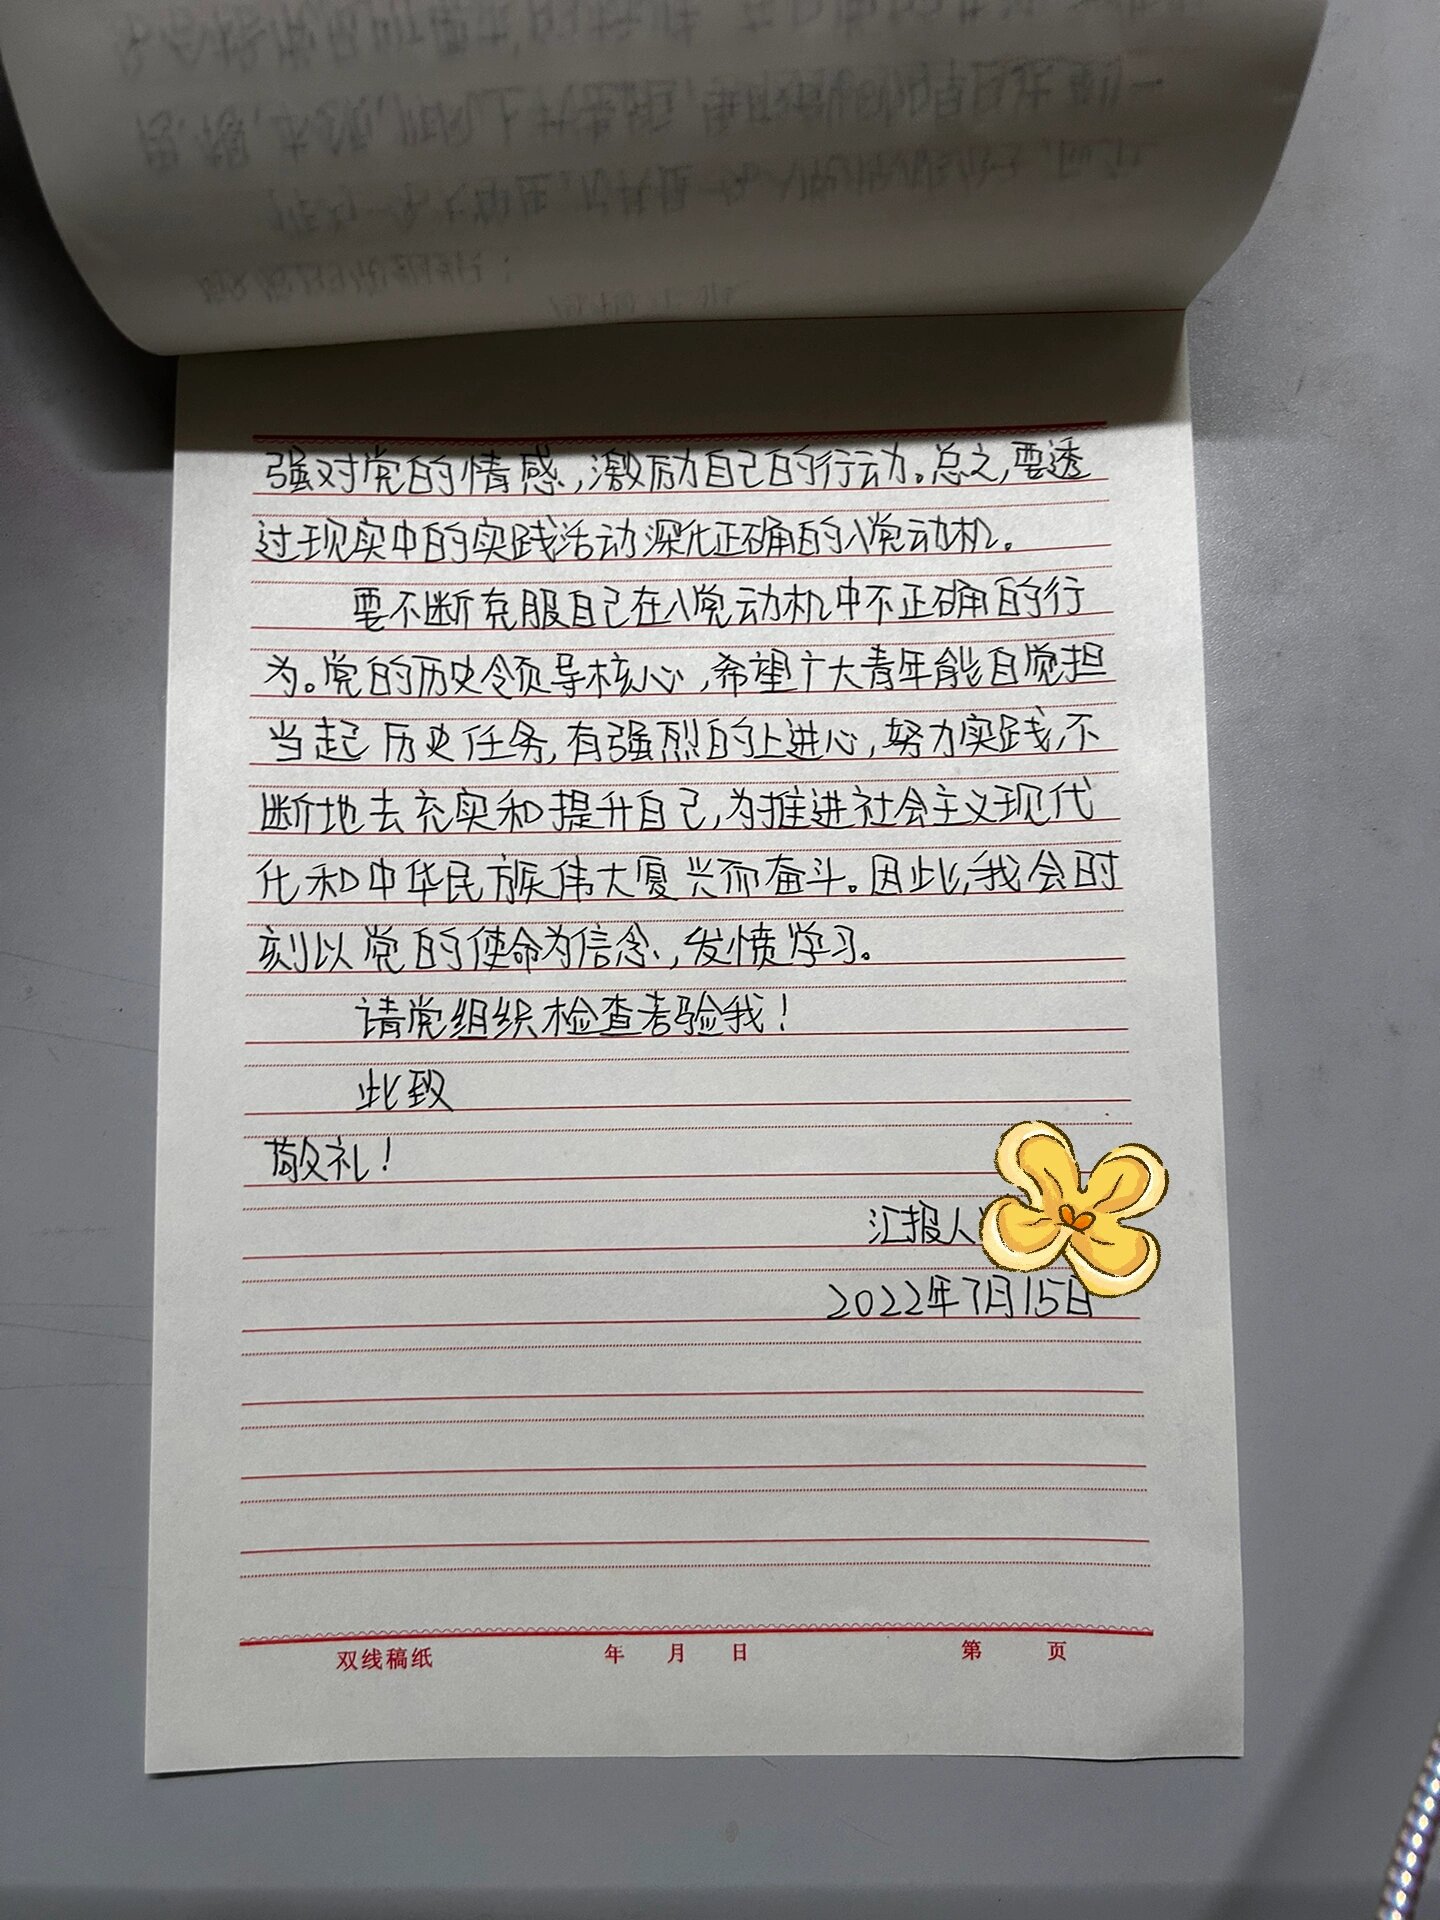 强对党的情感,激励自己的行动。总之,要透
过现实中的实践活动深化正确的入党动机。
要不断克服自己在入党动机中不正确的行
为。党的历史领导核心,希望广大青年能自觉担
当起历史任务,有强烈的上进心,努力实践,不
断地去充实和提升自己,为推进社会主义现代
化和中华民族伟大复兴而奋斗。因此,我会时
刻以党的使命为信念,发愤学习。
请党组织检查考验我!
此致
敬礼!
汇报人
2022年7月15日
双线稿纸 年 月 日 第 页